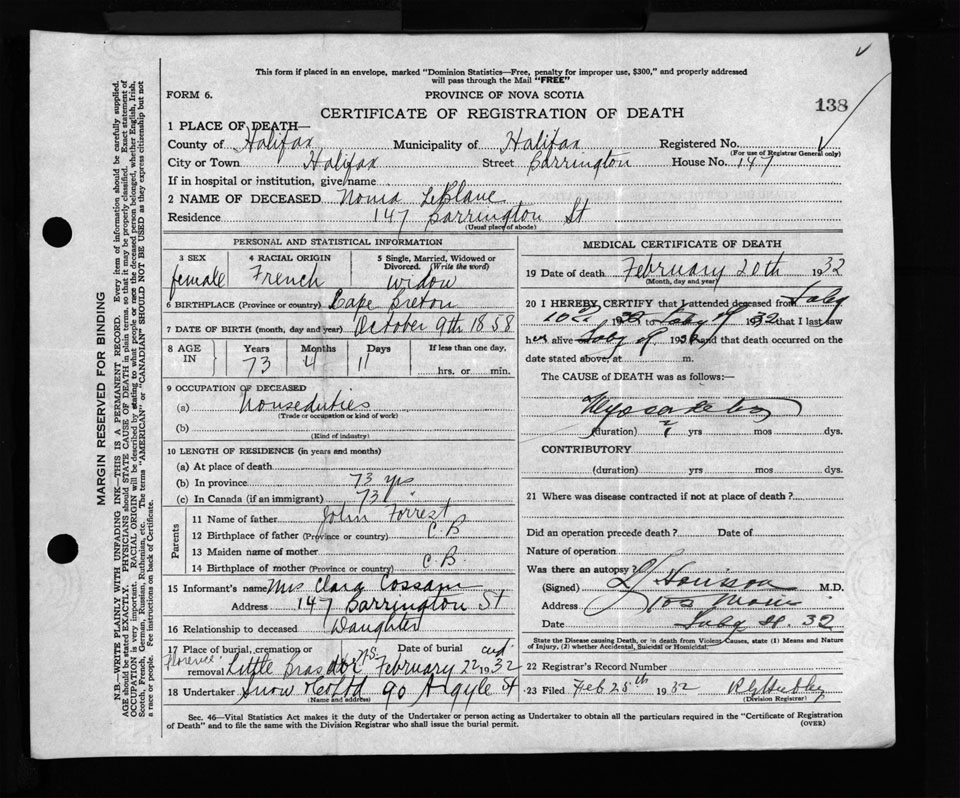 This form if placed in an envelope, marked "Dominion Statistics—Free, penalty for improper use, $300," and properly addressed
will pass through the Mail "FREE"
FORM 6.
PROVINCE OF NOVA SCOTIA
138
CERTIFICATE OF REGISTRATION OF DEATH
1 PLACE OF DEATH—
County of Halifax Municipality of Halifax Registered No.
(For use of Registrar General only)
City or Town Halifax Street Barrington House No. 147
If in hospital or institution, give name
2 NAME OF DECEASED LeBlanc
Residence 147 Barrington St
(Usual place of abode)
PERSONAL AND STATISTICAL INFORMATION
3 SEX 4 RACIAL ORIGIN 5 Single, Married, Widowed or
Divorced. (Write the word)
female French Widow
6 BIRTHPLACE (Province or country) Cape Breton
7 DATE OF BIRTH (month, day and year) October 9th 1858
8 AGE IN Years Months Days If less than one day,
73 4 11 hrs. or min.
9 OCCUPATION OF DECEASED
(a) Houseduties
(Trade or occupation or kind of work)
(b)
(Kind of industry)
10 LENGTH OF RESIDENCE (in years and months)
(a) At place of death
(b) In province 73 yrs
(c) In Canada (if an immigrant) 73 "
Parents
11 Name of father John Forrest
12 Birthplace of father (Province or country) C.B
13 Maiden name of mother
14 Birthplace of mother (Province or country) C.B.
15 Informant's name Mrs Clara
Address 147 Barrington St
16 Relationship to deceased Daughter
17 Place of burial, cremation or Date of burial
removal Florence Little Bras dor N.S. February 22 1932
18 Undertaker Snow & Co Ltd 90 Argyle St
(Name and address)
MEDICAL CERTIFICATE OF DEATH
19 Date of death February 20th 1932
(Month, day and year)
20 I HEREBY CERTIFY that I attended deceased from
10 1932 to 1932 that I last saw
her alive 193 and that death occurred on the
date stated above, at m.
The CAUSE of DEATH was as follows:—
(duration) yrs mos dys.
CONTRIBUTORY
(duration) yrs mos dys.
21 Where was disease contracted if not at place of death?
Did an operation precede death? Date of
Nature of operation
Was there an autopsy?
(Signed) M.D.
Address
Date 32
State the Disease causing Death, or in death from Violent Causes, state (1) Means and Nature
of Injury, (2) whether Accidental, Suicidal or Homicidal.
22 Registrar's Record Number
23 Filed Feb 25th 1932
(Division Registrar)
Sec. 46—Vital Statistics Act makes it the duty of the Undertaker or person acting as Undertaker to obtain all the particulars required in the "Certificate of Registration
of Death" and to file the same with the Division Registrar who shall issue the burial permit.
(OVER)
MARGIN RESERVED FOR BINDING
N.B.—WRITE PLAINLY WITH UNFADING INK—THIS IS A PERMANENT RECORD. Every item of information should be carefully supplied.
AGE should be stated EXACTLY. PHYSICIANS should STATE CAUSE OF DEATH in plain terms, so that it may be properly classified. Exact statement of
OCCUPATION is very important. RACIAL ORIGIN will be described by stating to what people or race the deceased person belonged, whether English, Irish,
Scotch, French, German, Russian, Ruthenian, etc. The terms "AMERICAN" or "CANADIAN" SHOULD NOT BE USED as they express citizenship but not
a race or people. See instructions on back of Certificate.